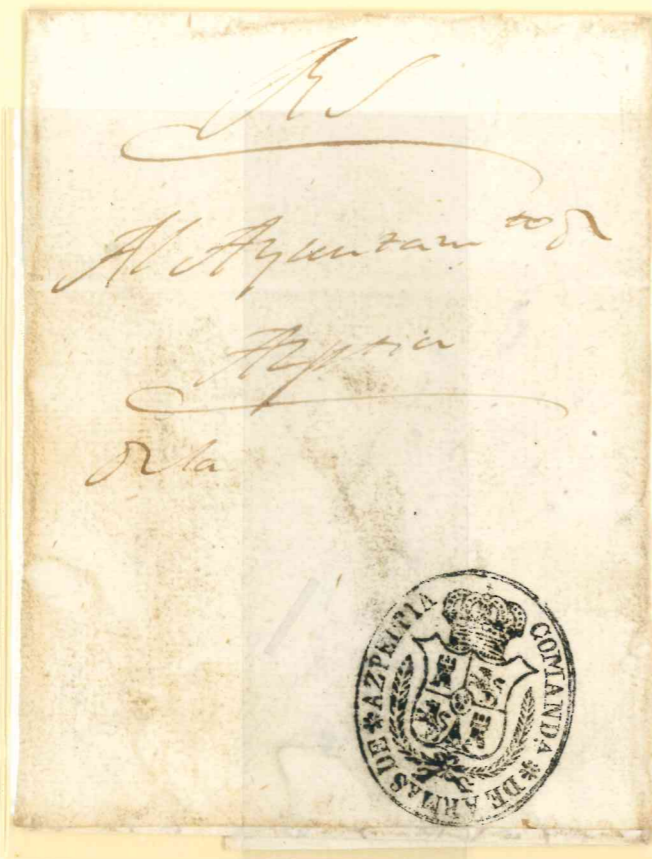 RS
Al Ayuntam to de
Azptia
de la
COMANDA * DE ARMAS DE * AZPEITIA